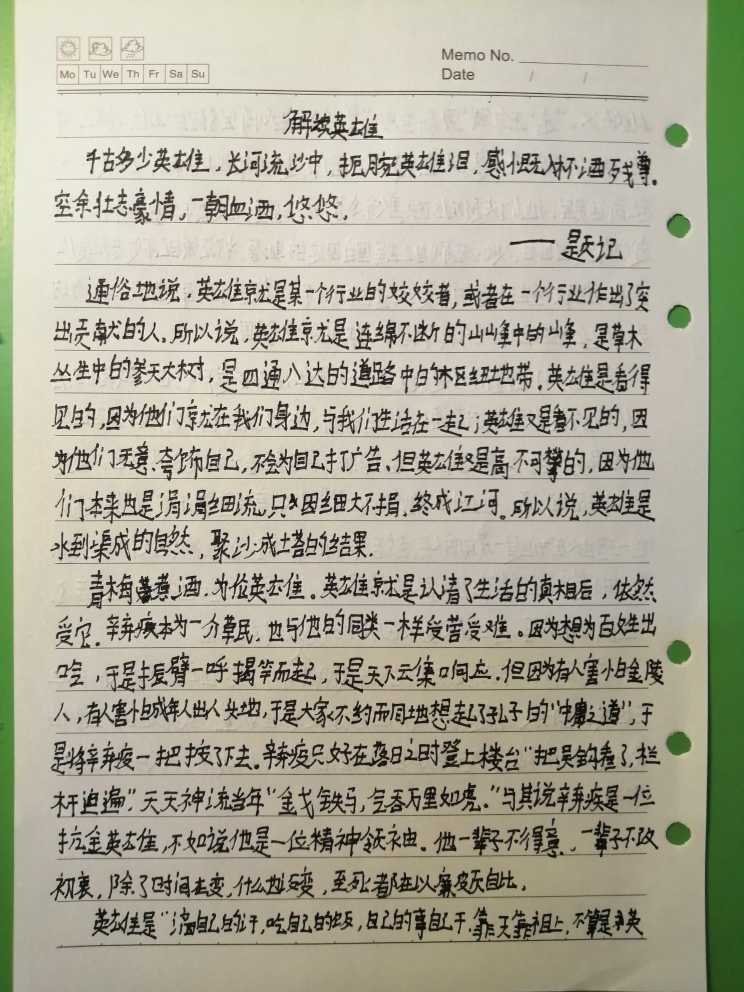 Memo No.
Date / /
Mo Tu We Th Fr Sa Su
解读英雄
千古多少英雄，长河流沙中，扼腕英雄泪，感恨既入杯洒残尊。
空余壮志豪情，一朝血洒，悠悠。
——题记
通俗地说，英雄就是某一个行业的佼佼者，或者在一个行业作出了突
出贡献的人。所以说，英雄就是连绵不断的山峰中的山峰，是草木
丛生中的参天大树，是四通八达的道路中的枢纽地带。英雄是看得
见的，因为他们就在我们身边，与我们生活在一起；英雄又是看不见的，因
为他们无意夸饰自己，不会为自己打广告、但英雄又是高不可攀的，因为他
们本来也是涓涓细流，只因细大不捐，终成江河。所以说，英雄是
水到渠成的自然，聚沙成塔的结果。
青梅煮酒，为伦英雄。英雄就是认清了生活的真相后，依然
爱它。辛弃疾本为一介草民，也与他的同类一样受苦受难。因为想为百姓出
口气，于是振臂一呼揭竿而起，于是天下云集响应。但因为有人害怕金陵
人，有人害怕成年人出人头地，于是大家不约而同地想起了孔子的“中庸之道”，于
是将辛弃疾一把按了下去。辛弃疾只好在落日之时登上楼台“把吴钩看了，栏
杆迫遍”，天天神流当年“金戈铁马，气吞万里如虎。”与其说辛弃疾是一位
抗金英雄，不如说他是一位精神领袖。他一辈子不得意，一辈子不改
初衷，除了时间在变，什么也没变，至死都在以廉颇自比。
英雄是“滴自己的汗，吃自己的饭，自己的事自己干，靠天靠祖上，不算是英